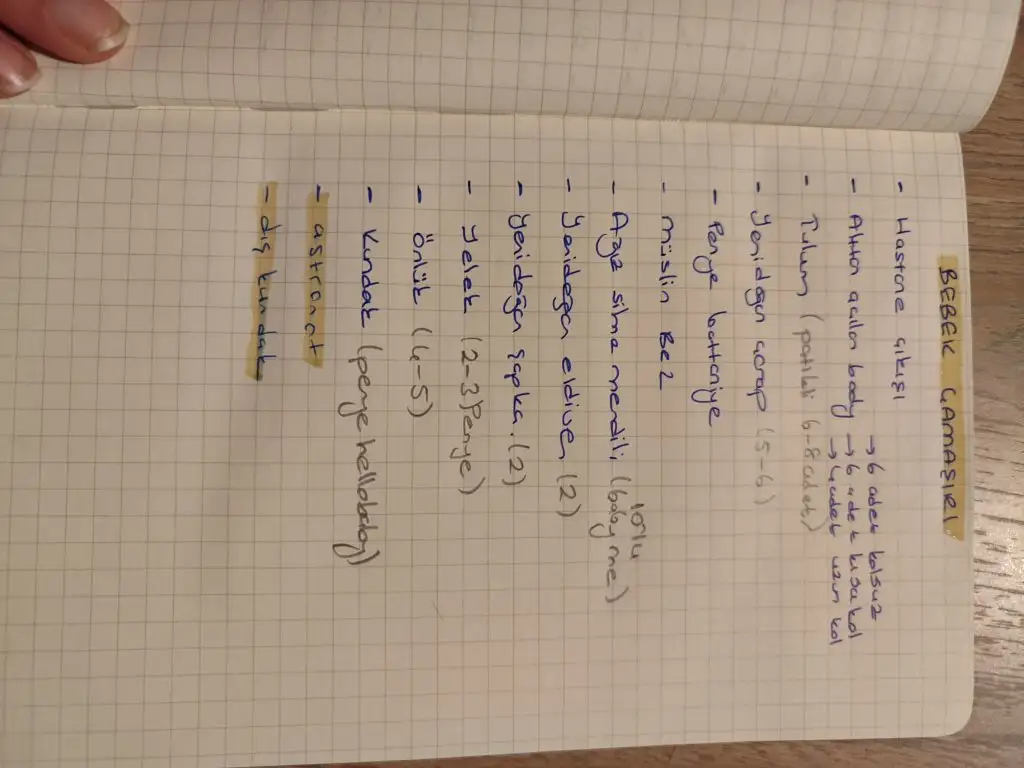 BEBEK ÇAMAŞIRI
- Hastane çıkışı
- Alttan açılan body → 6 adet kolsuz
→ 6 adet kısa kol
→ 4 adet uzun kol
- Tulum (patikli 6-8 adet)
- Yenidoğan çorap (5-6)
- Penye battaniye
- Müslin Bez
- Ağız silme mendili 10'lu (baby me)
- Yenidoğan eldiven (2)
- Yenidoğan şapka. (2)
- Yelek (2-3) Penye)
- Önlük (4-5)
- Kundak (penye hellobaby)
- astronot
- dış kundak